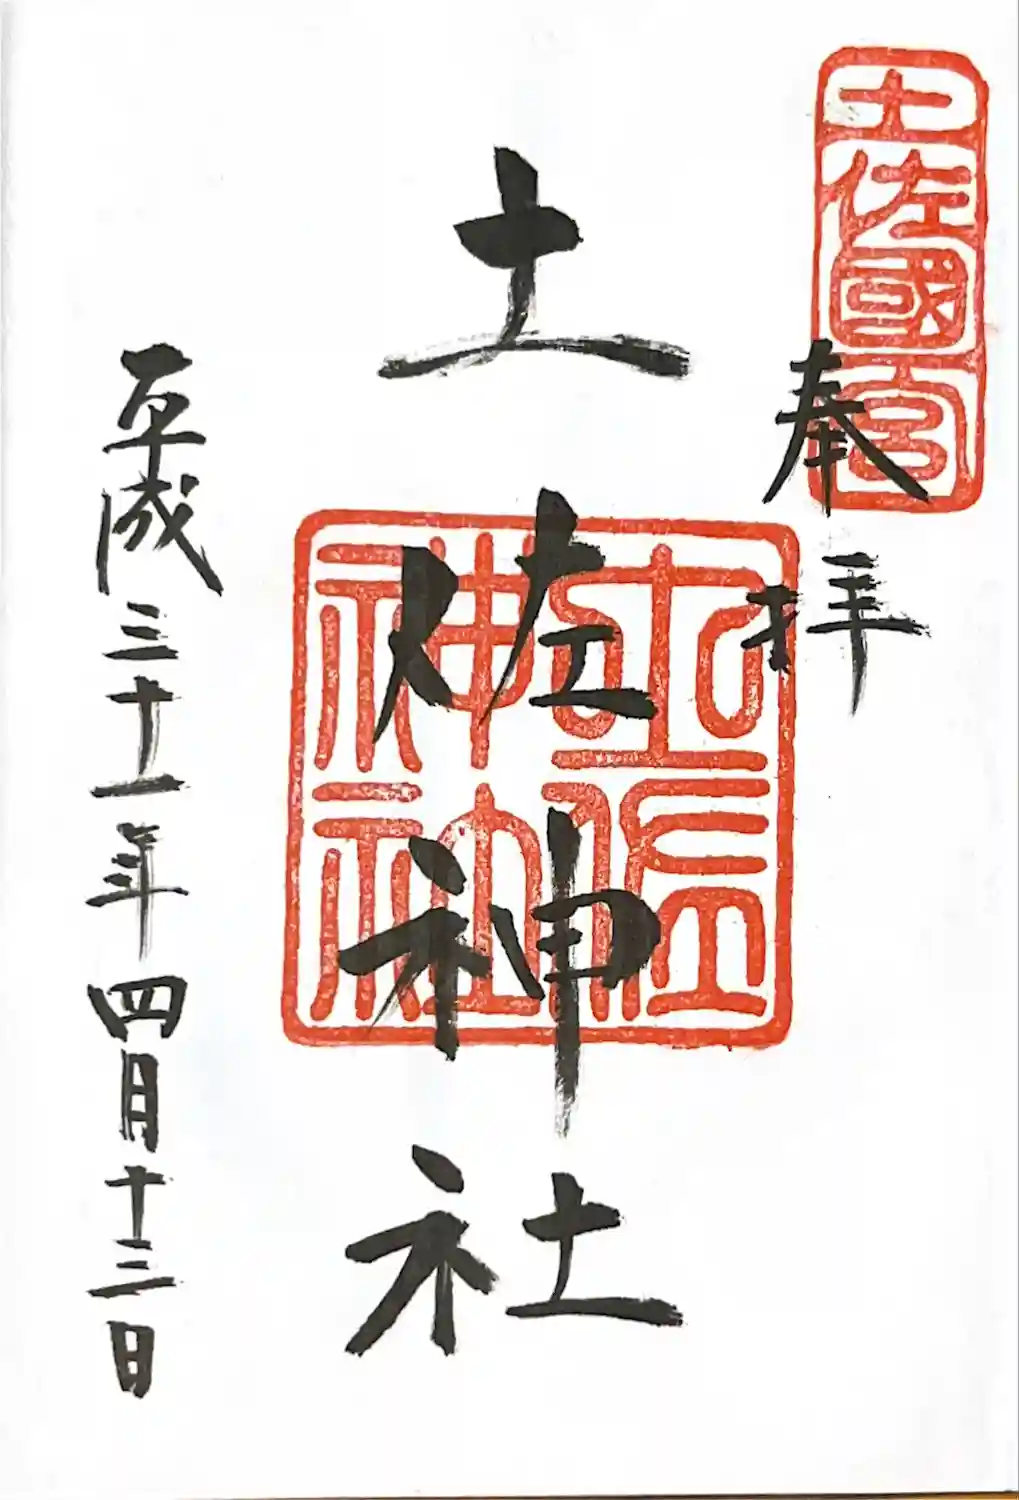 土佐國一宮
奉拝
土佐神社
土佐神社
平成三十一年四月十三日